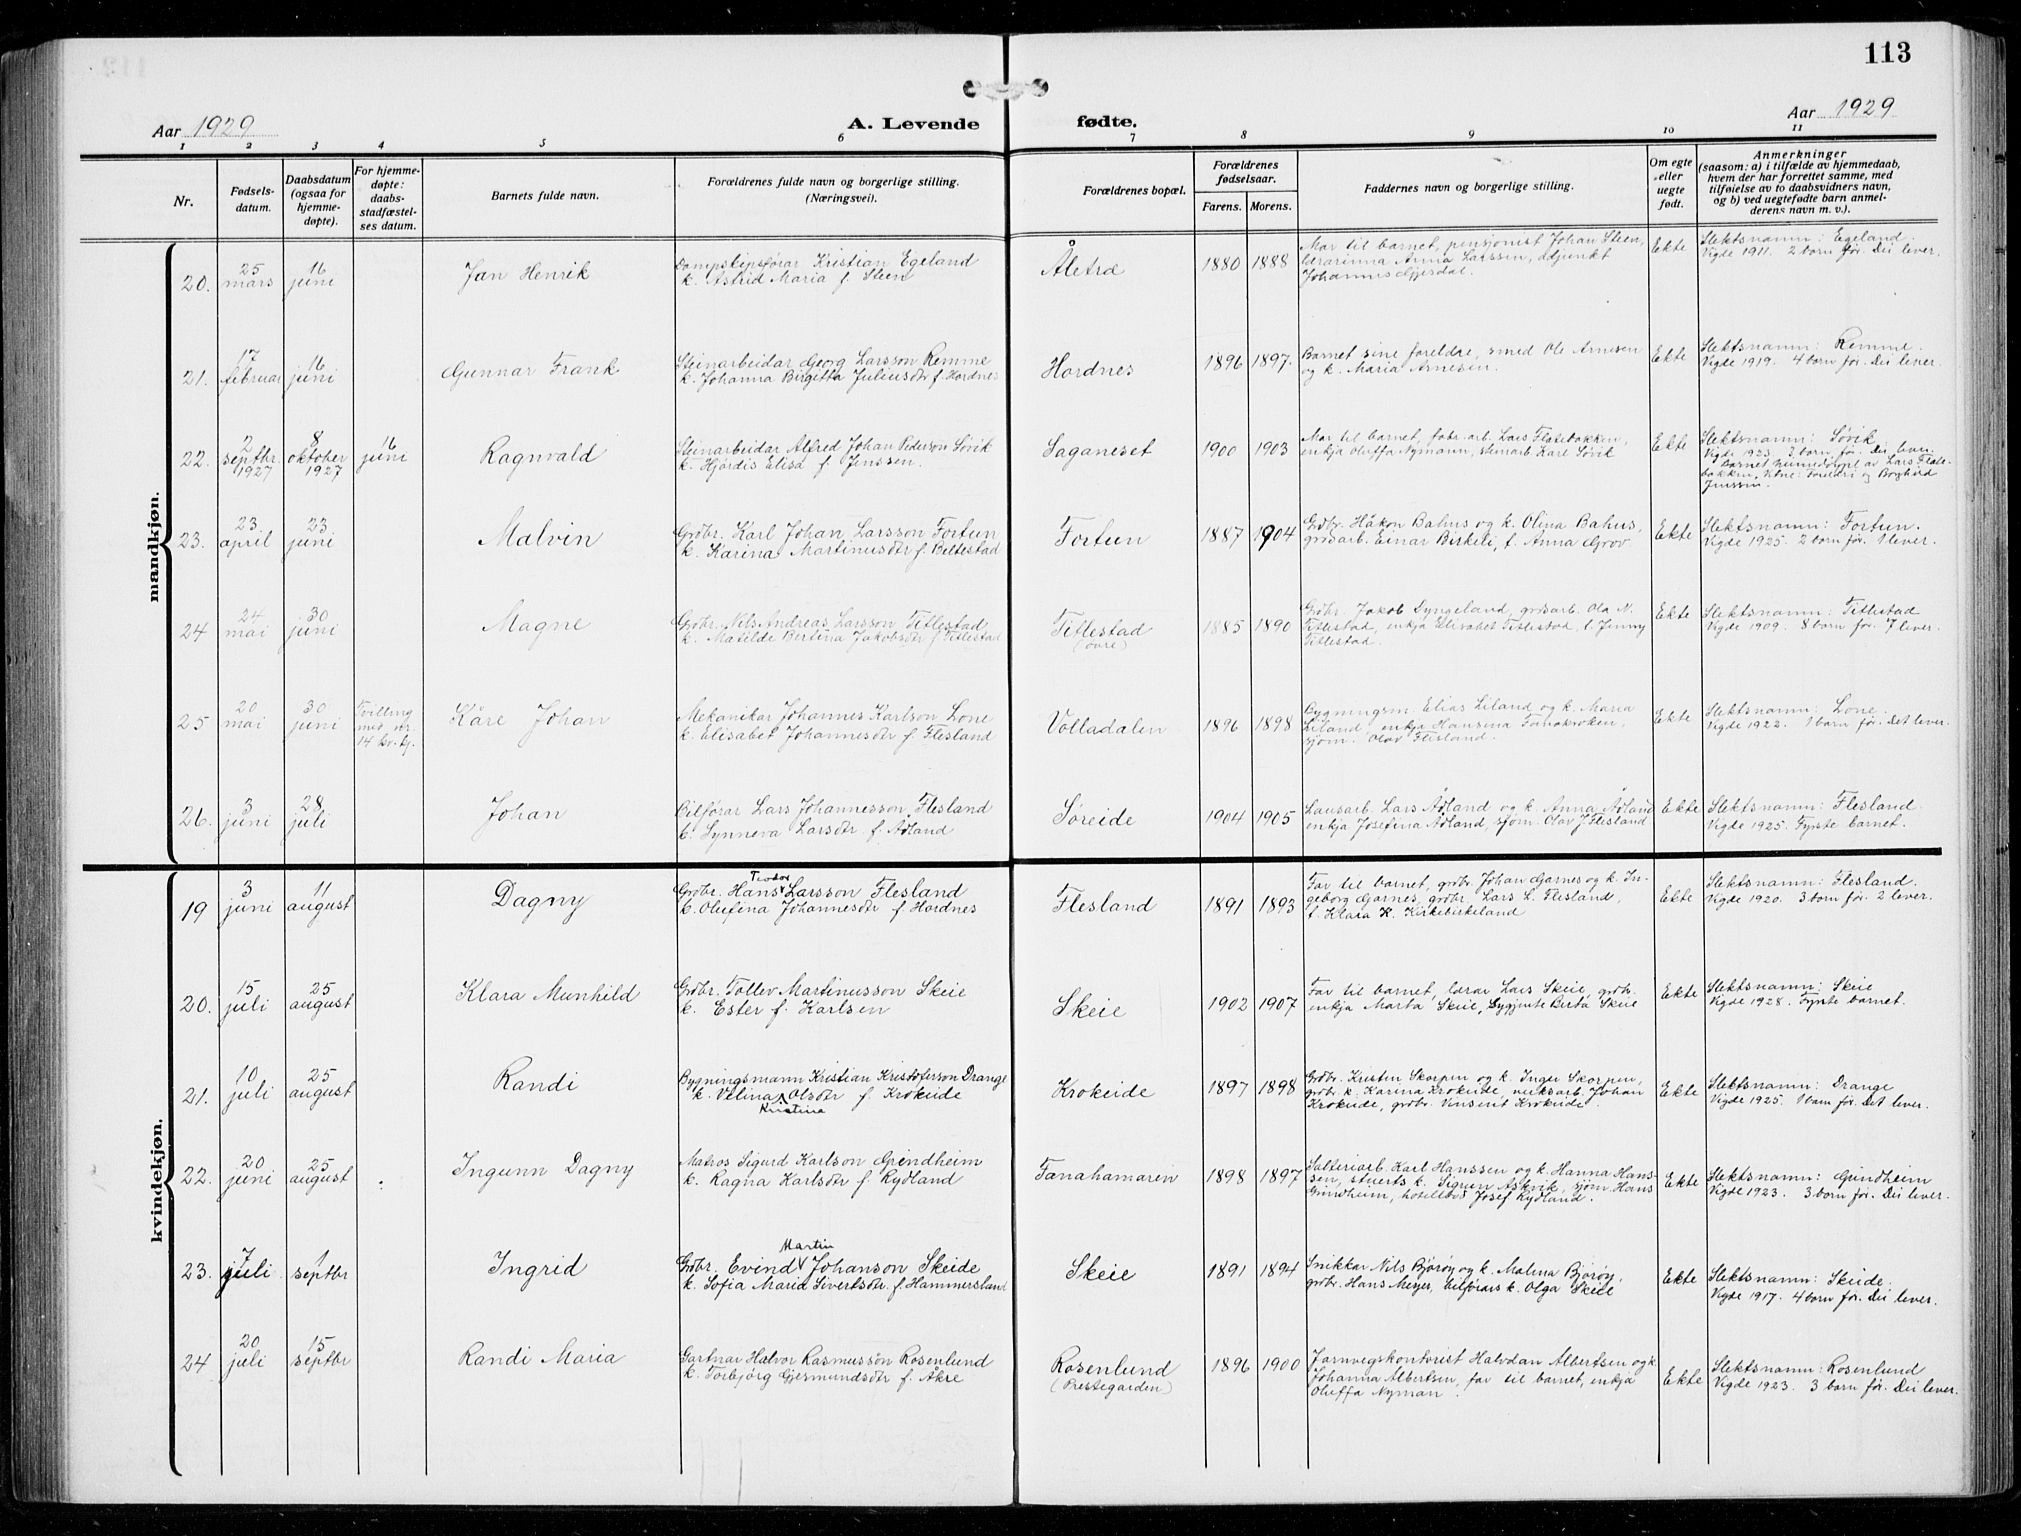 113
Aar 1929
A. Levende
fødte.
Aar 1929
1 2 3 4 5 6 7 8 9 10 11
Nr.
Fødsels-
datum.
Daabsdatum
(ogsaa for
hjemme-
døpte).
For hjemme-
døpte:
daabs-
stadfæstel-
ses datum.
Barnets fulde navn.
Forældrenes fulde navn og borgerlige stilling.
(Næringsvei).
Forældrenes bopæl.
Forældrenes
fødselsaar.
Farens. Morens.
Faddernes navn og borgerlige stilling.
Om egte
eller
uegte
født.
Anmerkninger
(saasom: a) i tilfælde av hjemmedaab,
hvem der har forrettet samme, med
tilføielse av to daabsvidners navn,
og b) ved uegtefødte barn anmel-
derens navn m. v.).
mandkjøn.
20.
25
mars
16
juni
Jan Henrik
Dampskipsførar Kristian Egeland
k. Astrid Maria f. Steen
Åletræ
1880 1888
Mor til barnet, pensjonist Johan Steen,
lærarinna Anna Larssen, adjunkt
Johannes Gjerdal.
Ekte
Slektsnamn: Egeland.
Vigde 1911. 2 born før. Dei lever.
21.
17
februar
16
juni
Gunnar Frank
Steinarbeidar Georg Larsson Remme
k. Johanna Birgitta Juliusdtr f. Hordnes
Hordnes
1896 1897.
Barnet sine foreldre, smed Ole Arnesen
og k. Maria Arnesen.
Ekte
Slektsnamn: Remme.
Vigde 1919. 4 born før. Dei lever.
22.
2
septbr.
1927
8
oktober
1927
16
juni
Ragnvald
Steinarbeidar Alfred Johan Pederson Søvik
k. Hjørdis Elisa f. Jenssen.
Saganeset
1900 1903
Mor til barnet, fabr.arb. Lars Flatebakken,
enkja Oluffa Nymann, steinarb. Karl Søvik
Ekte
Slektsnamn: Søvik
Vigde 1923. 3 born før. Dei lever.
Barnet heimedøypt av Lars Flate-
bakken, Vitne: Foreldri og Borghild
Jenssen.
23.
23
april
23
juni
Malvin
Grdbr. Karl Johan Larsson Fortun
k. Karina Martinusdtr f. Beltestad
Fortun
1887 1904
Grdbr. Håkon Bahus og k. Olina Bahus,
grdsarb. Einar Birkeli, f. Anna Grov
Ekte
Slektsnamn: Fortun.
Vigde 1925. 2 born før. 1 lever.
24
24
mai
30
juni
Magne
Grdbr. Nils Andreas Larsson Titlestad
k. Matilde Bertina Jakobsdtr f. Titlestad
Titlestad
(øvre)
1885 1890
Grdbr. Jakob Lyngeland, grdsarb. Ola N.
Titlestad, enkja Elisabet Titlestad, f. Jenny
Titlestad.
Ekte
Slektsnamn: Titlestad
Vigde 1909. 8 born før. 7 lever.
25
20
mai
30
juni
Tvilling
med nr.
14 kv. kj.
Kåre Johan
Mekanikar Johannes Karlson Lone
k. Elisabet Johannesdtr f. Flesland
Volladalen
1896 1898
Bygningsm. Elias Liland og k. Maria
Liland, enkja Hansina Fanakroken,
sjøm. Olav Flesland.
Ekte
Slektsnamn: Lone.
Vigde 1922. 1 born før. Det lever.
26.
3
juni
28
juli
Johan
Bilførar Lars Johannesson Flesland
k. Synneva Larsdtr f. Ådland
Søreide
1904 1905
Lausarb. Lars Ådland og k. Anna Ådland
enkja Josefina Ådland, sjøm. Olav J. Flesland
Ekte
Slektsnamn: Flesland.
Vigde 1925. Fyrste barnet.
kvindekjøn.
19
3
juni
11
august
Dagny
Teodor
Grdbr. Hans Larsson Flesland
k. Olufina Johannesdtr f. Hordnes
Flesland
1891 1893
Far til barnet, grdbr. Johan Garnes og k. In-
geborg Garnes, grdbr. Lars L. Flesland,
f. Klara K. Kirkebirkeland
Ekte
Slektsnamn: Flesland.
Vigde 1920. 3 born før. 2 lever.
20.
15
juli
25
august
Klara Munhild
Grdbr. Tollev Martinusson Skeie
k. Ester f. Karlsen
Skeie
1902 1907
Far til barnet, lærar Lars Skeie, grdbr.
enkja Marta Skeie, sygjente Berta Skeie
Ekte
Slektsnamn: Skeie
Vigde 1928. Fyrste barnet.
21.
10
juli
25
august
Randi
Bygningsmann Kristian Kristoferson Drange
k. Velina Olsdtr f. Krokeide
Kristina
Krokeide
1897 1898
Grdbr. Kristen Skorpen og k. Inger Skorpen,
grdbr. k. Karina Krokeide, verksarb. Johan
Krokeide, grdbr. Vinsent Krokeide.
Ekte
Slektsnamn: Drange
Vigde 1925. 1 born før. Det lever.
22.
20
juni
25
august
Ingunn Dagny
Matros Sigurd Karlson Grindheim
k. Ragna Karlsdtr f. Rydland
Fanahamaren
1898 1897
Salteriarb. Karl Hanssen og k. Hanna Hans-
sen, stuerts k. Sigrun Askvik, sjøm. Hans
Grindheim, Josef Rydland.
Ekte
Slektsnamn: Grindheim
Vigde 1923. 3 born før. Dei lever.
23.
7
juli
1
septbr
Ingrid
Martin
Grdbr. Evind Johanson Skeide
k. Sofia Maria Sivertsdtr. f. Hammersland
Skeie
1891 1894
Snikkar Nils Bjørøy og k. Malena Bjørøy,
grdbr. Hans Meyer, bilførars k. Olga Skeie
Ekte
Slektsnamn: Skeide.
Vigde 1917. 4 born før. Dei lever.
24.
20
juli
15
septbr
Randi Maria
Gartnar Halvor Rasmusson Rosenlund
k. Torbjørg Gjermundsdtr f. Åkre
Rosenlund
(Prestegarden)
1896 1900
Jarnvegskontorist Halvdan Albertsen og k.
Johanna Albertsen, far til barnet, enkja
Oluffa Nyman.
Ekte
Slektsnamn: Rosenlund
Vigde 1923. 3 born før. Dei lever.